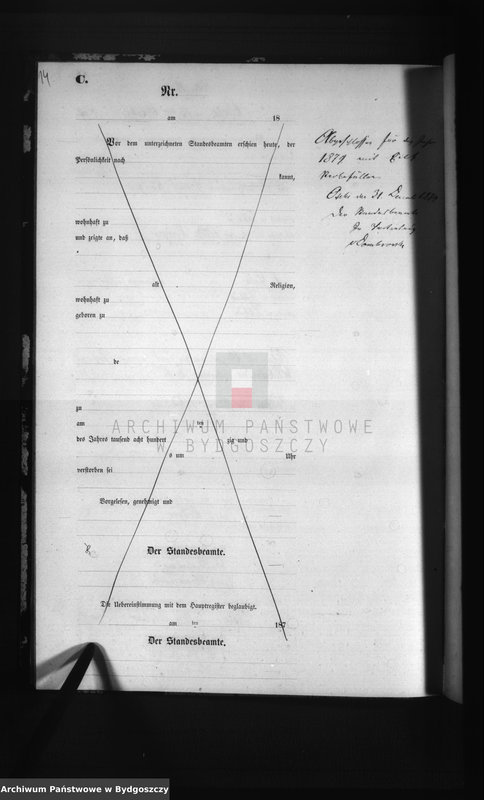 14
C.
Nr.
am 18
Vor dem unterzeichneten Standesbeamten erschien heute, der
Persönlichkeit nach
kannt,
wohnhaft zu
und zeigte an, daß
alt Religion,
wohnhaft zu
geboren zu
de
zu
am ten
des Jahres tausend acht hundert zig und
s um Uhr
verstorben sei
Vorgelesen, genehmigt und
Der Standesbeamte.
Die Uebereinstimmung mit dem Hauptregister beglaubigt.
am ten 187
Der Standesbeamte.
Abgeschlossen für das Jahr
1879 mit
den 31 Dezember
Der Standesbeamte
ARCHIWUM PAŃSTWOWE
W BYDGOSZCZY
Archiwum Państwowe w Bydgoszczy